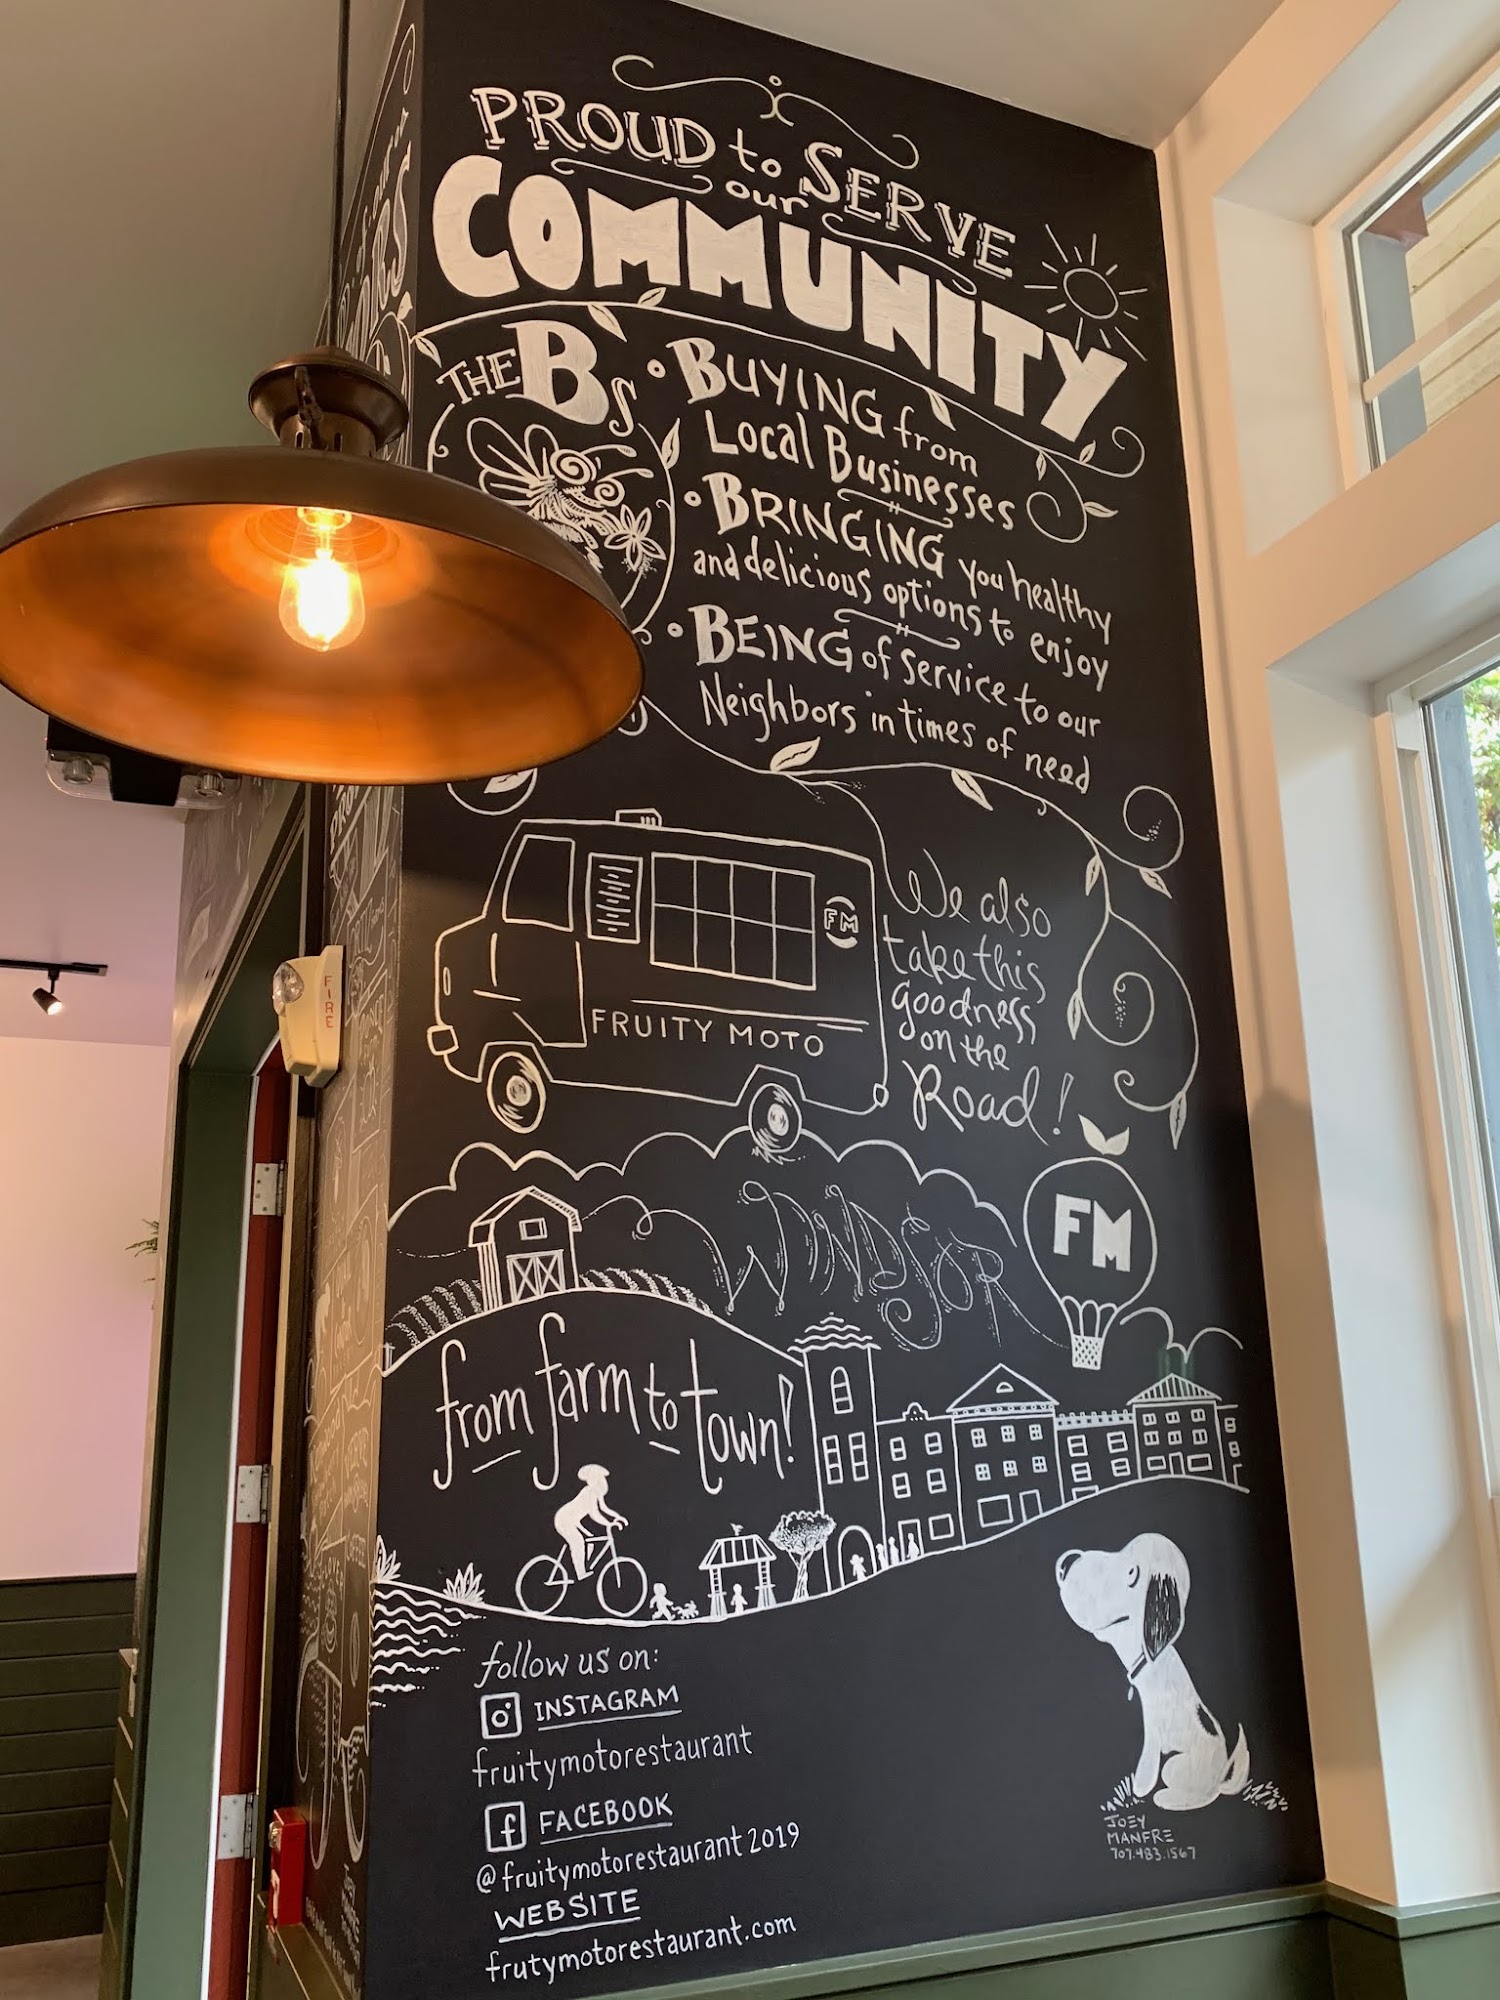 PROUD to SERVE
our
COMMUNITY
THE Bs
• BUYING from
Local Businesses
• BRINGING you healthy
and delicious options to enjoy
• BEING of service to our
Neighbors in times of need
FM
FRUITY MOTO
We also
take this
goodness
on the
Road!
WINDSOR
FM
from farm to town!
follow us on:
INSTAGRAM
fruitymotorestaurant
f FACEBOOK
@fruitymotorestaurant2019
WEBSITE
frutymotorestaurant.com
JOEY
MANFRE
707.483.1567
FIRE